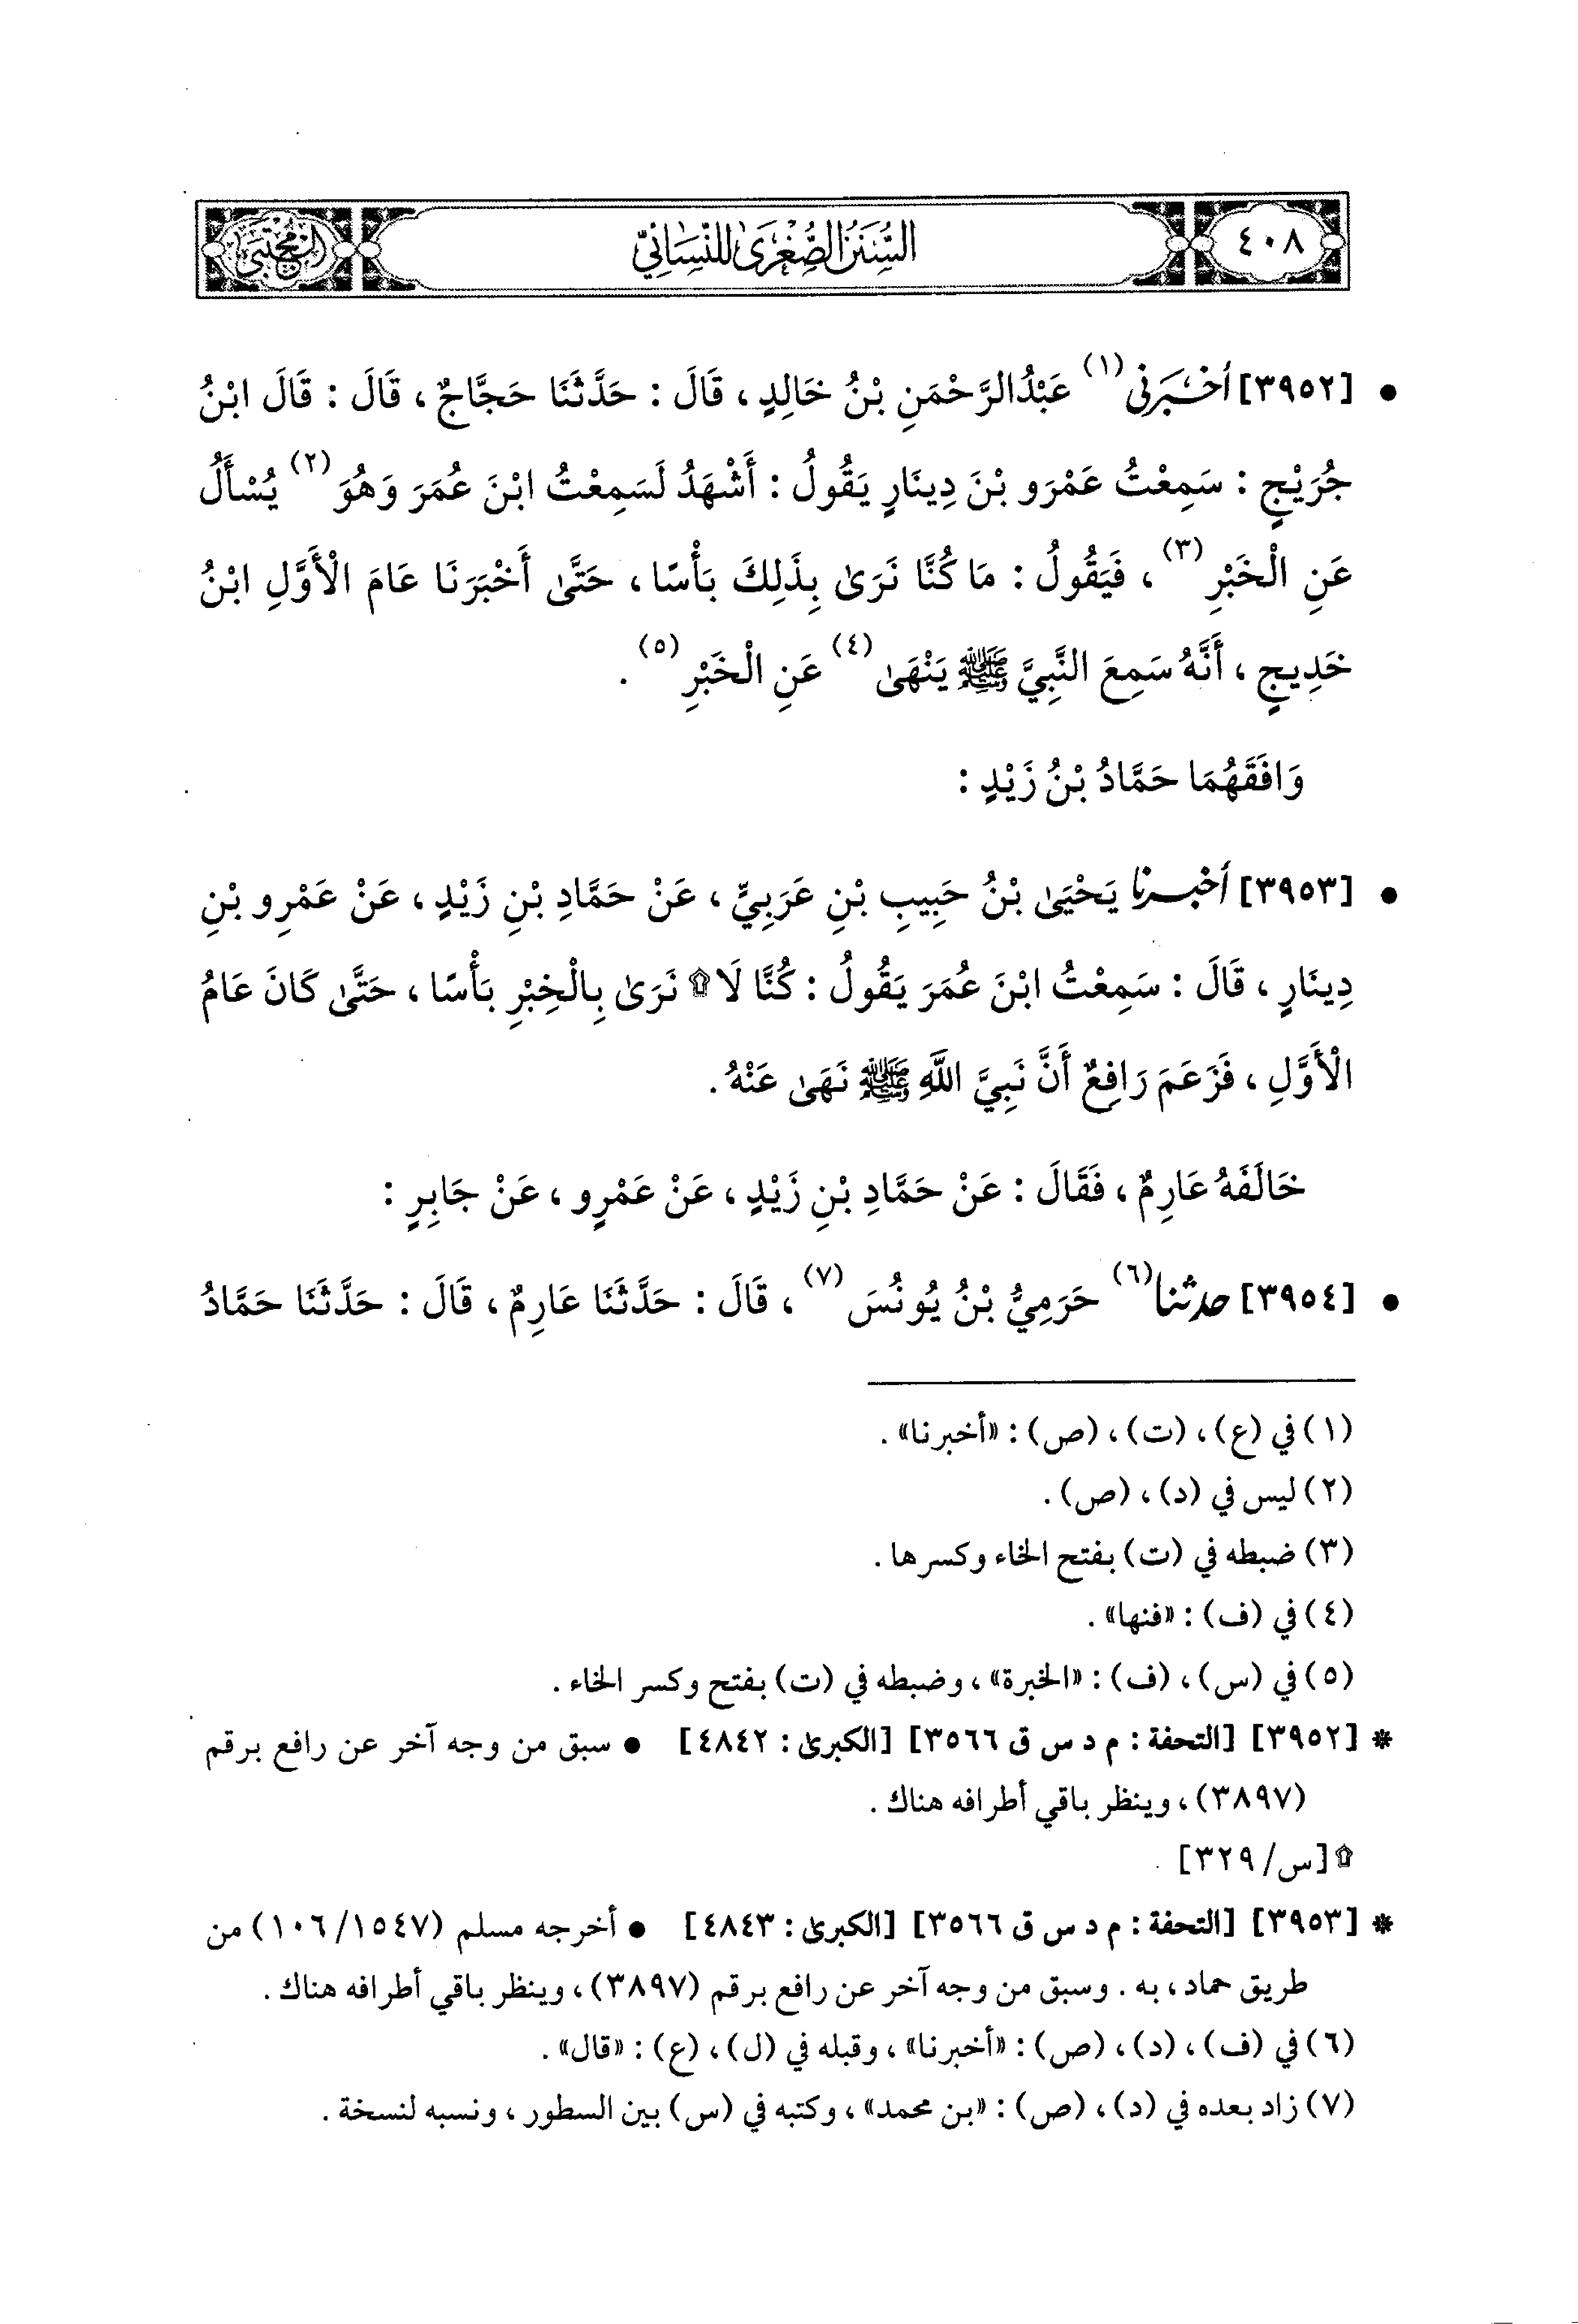 ٤٠٨ السُّنَنُ الصُّغْرَىٰ لِلنَّسَائِيِّ المجتبى
• [٣٩٥٢] أَخْبَرَنِي (١) عَبْدُ الرَّحْمَنِ بْنُ خَالِدٍ ، قَالَ : حَدَّثَنَا حَجَّاجٌ ، قَالَ : قَالَ ابْنُ
جُرَيْجٍ : سَمِعْتُ عَمْرَو بْنَ دِينَارٍ يَقُولُ : أَشْهَدُ لَسَمِعْتُ ابْنَ عُمَرَ وَهُوَ (٢) يُسْأَلُ
عَنِ الْخَبْرِ (٣) ، فَيَقُولُ : مَا كُنَّا نَرَىٰ بِذَلِكَ بَأْسًا ، حَتَّىٰ أَخْبَرَنَا عَامَ الْأَوَّلِ ابْنُ
خَدِيجٍ ، أَنَّهُ سَمِعَ النَّبِيَّ ﷺ يَنْهَىٰ (٤) عَنِ الْخَبْرِ (٥) .
وَافَقَهُمَا حَمَّادُ بْنُ زَيْدٍ :
• [٣٩٥٣] أخبرنا يَحْيَىٰ بْنُ حَبِيبِ بْنِ عَرَبِيٍّ ، عَنْ حَمَّادِ بْنِ زَيْدٍ ، عَنْ عَمْرِو بْنِ
دِينَارٍ ، قَالَ : سَمِعْتُ ابْنَ عُمَرَ يَقُولُ : كُنَّا لَا۩ نَرَىٰ بِالْخِبْرِ بَأْسًا ، حَتَّىٰ كَانَ عَامُ
الْأَوَّلِ ، فَزَعَمَ رَافِعٌ أَنَّ نَبِيَّ اللَّهِ ﷺ نَهَىٰ عَنْهُ .
خَالَفَهُ عَارِمٌ ، فَقَالَ : عَنْ حَمَّادِ بْنِ زَيْدٍ ، عَنْ عَمْرٍو ، عَنْ جَابِرٍ :
• [٣٩٥٤] حدثنا (٦) حَرَمِيُّ بْنُ يُونُسَ (٧) ، قَالَ : حَدَّثَنَا عَارِمٌ ، قَالَ : حَدَّثَنَا حَمَّادُ
(١) في (ع) ، (ت) ، (ص) : «أخبرنا» .
(٢) ليس في (د) ، (ص) .
(٣) ضبطه في (ت) بفتح الخاء وكسرها .
(٤) في (ف) : «فنها» .
(٥) في (س) ، (ف) : «الخبرة» ، وضبطه في (ت) بفتح وكسر الخاء .
* [٣٩٥٢] [التحفة : م د س ق ٣٥٦٦] [الكبرىٰ : ٤٨٤٢] • سبق من وجه آخر عن رافع برقم
(٣٨٩٧) ، وينظر باقي أطرافه هناك .
۩ [س/ ٣٢٩]
* [٣٩٥٣] [التحفة : م د س ق ٣٥٦٦] [الكبرىٰ : ٤٨٤٣] • أخرجه مسلم (١٥٤٧/ ١٠٦) من
طريق حماد ، به . وسبق من وجه آخر عن رافع برقم (٣٨٩٧) ، وينظر باقي أطرافه هناك .
(٦) في (ف) ، (د) ، (ص) : «أخبرنا» ، وقبله في (ل) ، (ع) : «قال» .
(٧) زاد بعده في (د) ، (ص) : «بن محمد» ، وكتبه في (س) بين السطور ، ونسبه لنسخة .